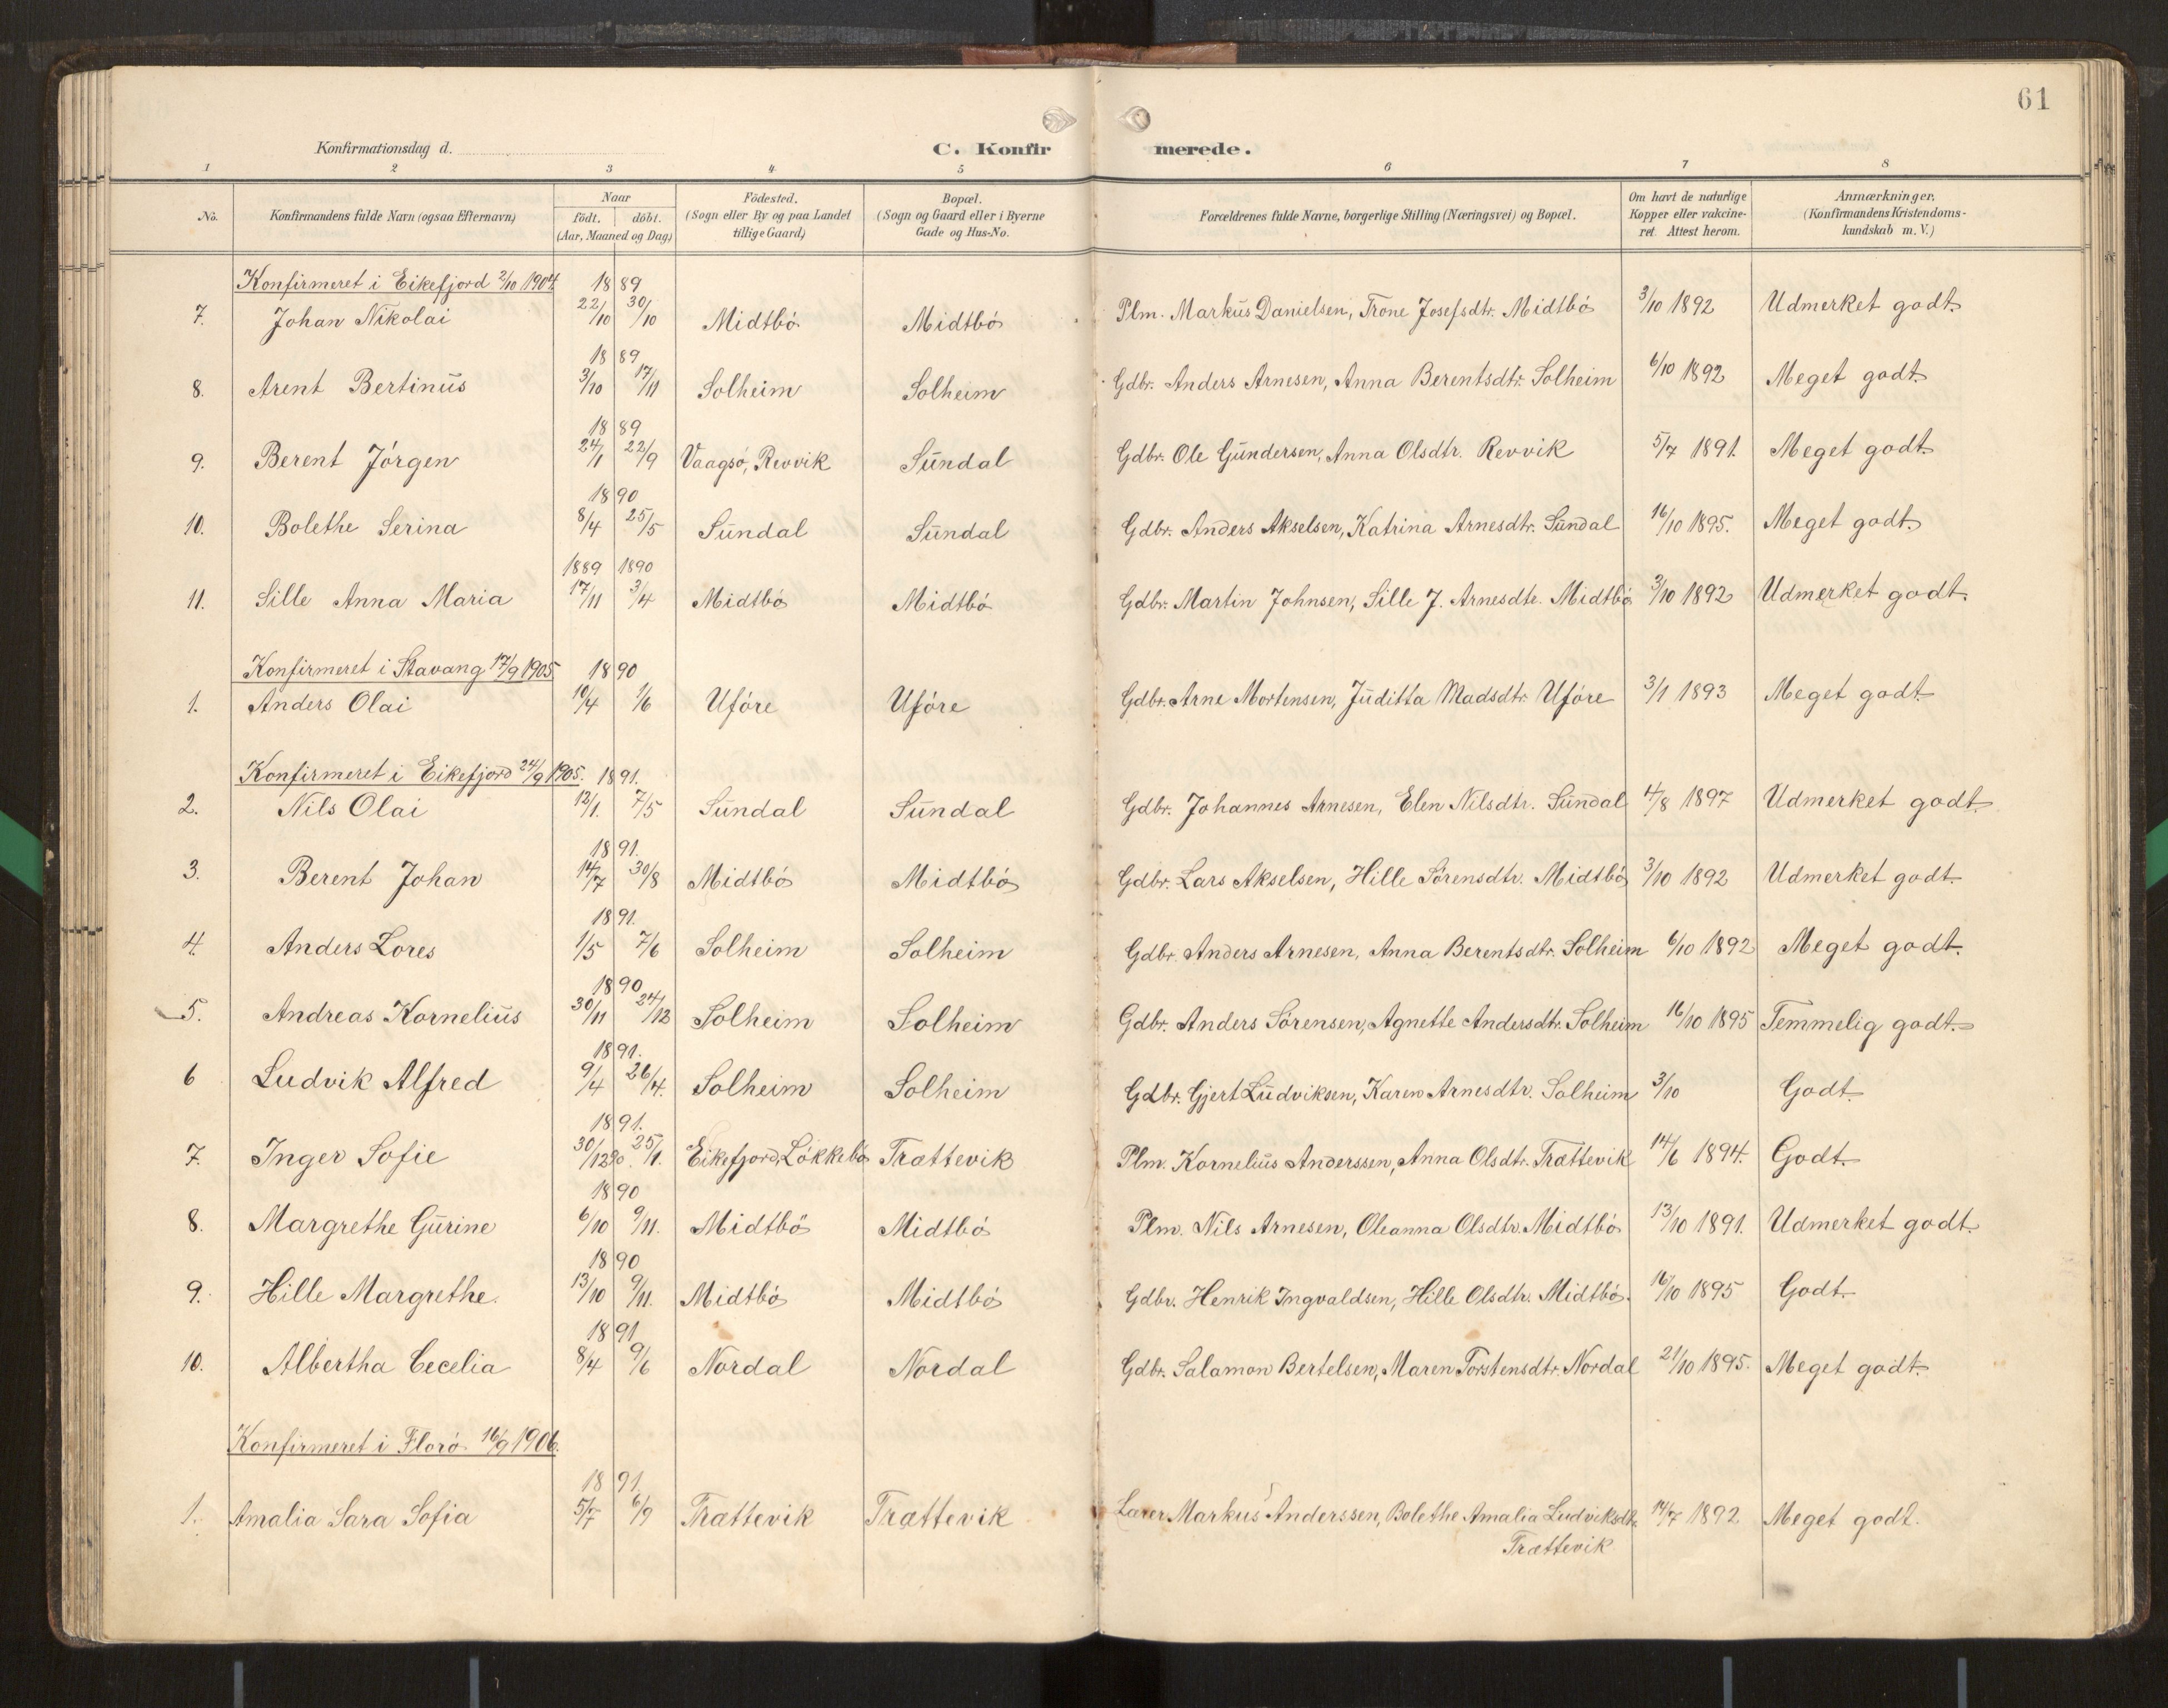 61
Konfirmationsdag d.
C. Konfirmerede.
1 2 3 4 5 6 7 8
No. Konfirmandens fulde Navn (ogsaa Efternavn) Naar født. døbt. (Aar, Maaned og Dag) Fødested. (Sogn eller By og paa Landet tillige Gaard) Bopæl. (Sogn og Gaard eller i Byerne Gade og Hus-No. Forældrenes fulde Navne, borgerlige Stilling (Næringsvei) og Bopæl. Om havt de naturlige Kopper eller vakcineret. Attest herom. Anmærkninger, (Konfirmandens Kristendomskundskab m. V.)
Konfirmeret i Eikefjord 2/10 1904. 1889
7. Johan Nikolai 22/10 30/10 Midtbø Midtbø Plm. Markus Danielsen, Trone Josefsdtr. Midtbø 3/10 1892 Udmerket godt.
1889
8. Arent Bertinus 3/10 17/11 Solheim Solheim Gdbr. Anders Arnesen, Anna Berentsdtr. Solheim 6/10 1892 Meget godt.
1889
9. Berent Jørgen 24/1 22/9 Vaagsø, Revvik Sundal Gdbr. Ole Gundersen, Anna Olsdtr. Revvik 5/7 1891. Meget godt.
1890
10. Bolethe Serina 8/4 25/5 Sundal Sundal Gdbr. Anders Akselsen, Katrina Arnesdtr. Sundal 16/10 1895. Meget godt.
1889 1890
11. Sille Anna Maria 17/11 3/4 Midtbø Midtbø Gdbr. Martin Johnsen, Sille J. Arnesdtr. Midtbø 3/10 1892 Udmerket godt.
Konfirmeret i Stavang 17/9 1905 1890
1. Anders Olai 10/4 1/6 Uføre Uføre Gdbr. Arne Mortensen, Juditta Madsdtr. Uføre 3/1 1893 Meget godt
Konfirmeret i Eikefjord 24/9 1905. 1891.
2. Nils Olai 12/1. 7/5 Sundal Sundal Gdbr. Johannes Arnesen, Elen Nilsdtr. Sundal 4/8 1897 Udmerket godt.
1891.
3. Berent Johan 14/7 30/8 Midtbø Midtbø Gdbr. Lars Akselsen, Hille Sørensdtr. Midtbø 3/10 1892 Udmerket godt.
1891.
4. Anders Lores 1/5 7/6 Solheim Solheim Gdbr. Anders Arnesen, Anna Berentsdtr. Solheim 6/10 1892 Meget godt.
1890
5. Andreas Kornelius 30/11 24/12 Solheim Solheim Gdbr. Anders Sørensen, Agnette Andersdtr. Solheim 16/10 1895 Temmelig godt.
1891.
6 Ludvik Alfred 9/4 26/4. Solheim Solheim Gdbr. Gjert Ludviksen, Karen Arnesdtr. Solheim 3/10 Godt.
1891.
7. Inger Sofie 30/12 90. 25/1. Eikefjord, Løkkebø Trættevik Plm. Kornelius Anderssen, Anna Olsdtr. Trættevik 14/6 1894. Godt.
1890
8. Margrethe Gurine 6/10 9/11. Midtbø Midtbø Plm. Nils Arnesen, Oleanna Olsdtr. Midtbø 13/10 1891. Udmerket godt.
1890
9. Hille Margrethe. 13/10 9/11. Midtbø Midtbø Gdbr. Henrik Ingvaldsen, Hille Olsdtr. Midtbø. 16/10 1895 Godt.
1891
10. Albertha Cecelia 8/4 9/6 Nordal Nordal Gdbr. Salamon Bertelsen, Maren Torstensdtr. Nordal 21/10 1895. Meget godt.
Konfirmeret i Florø 16/9 1906.
1891
1. Amalia Sara Sofia 5/7 6/9 Trættevik Trættevik Lærer Markus Anderssen, Bolethe Amalia Ludviksdtr. 14/7 1892 Meget godt.
Trættevik